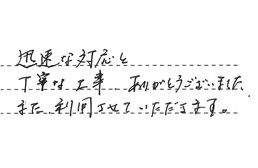 迅速な対応と
丁寧な工事 ありがとうございました。
また、利用させていただきます。